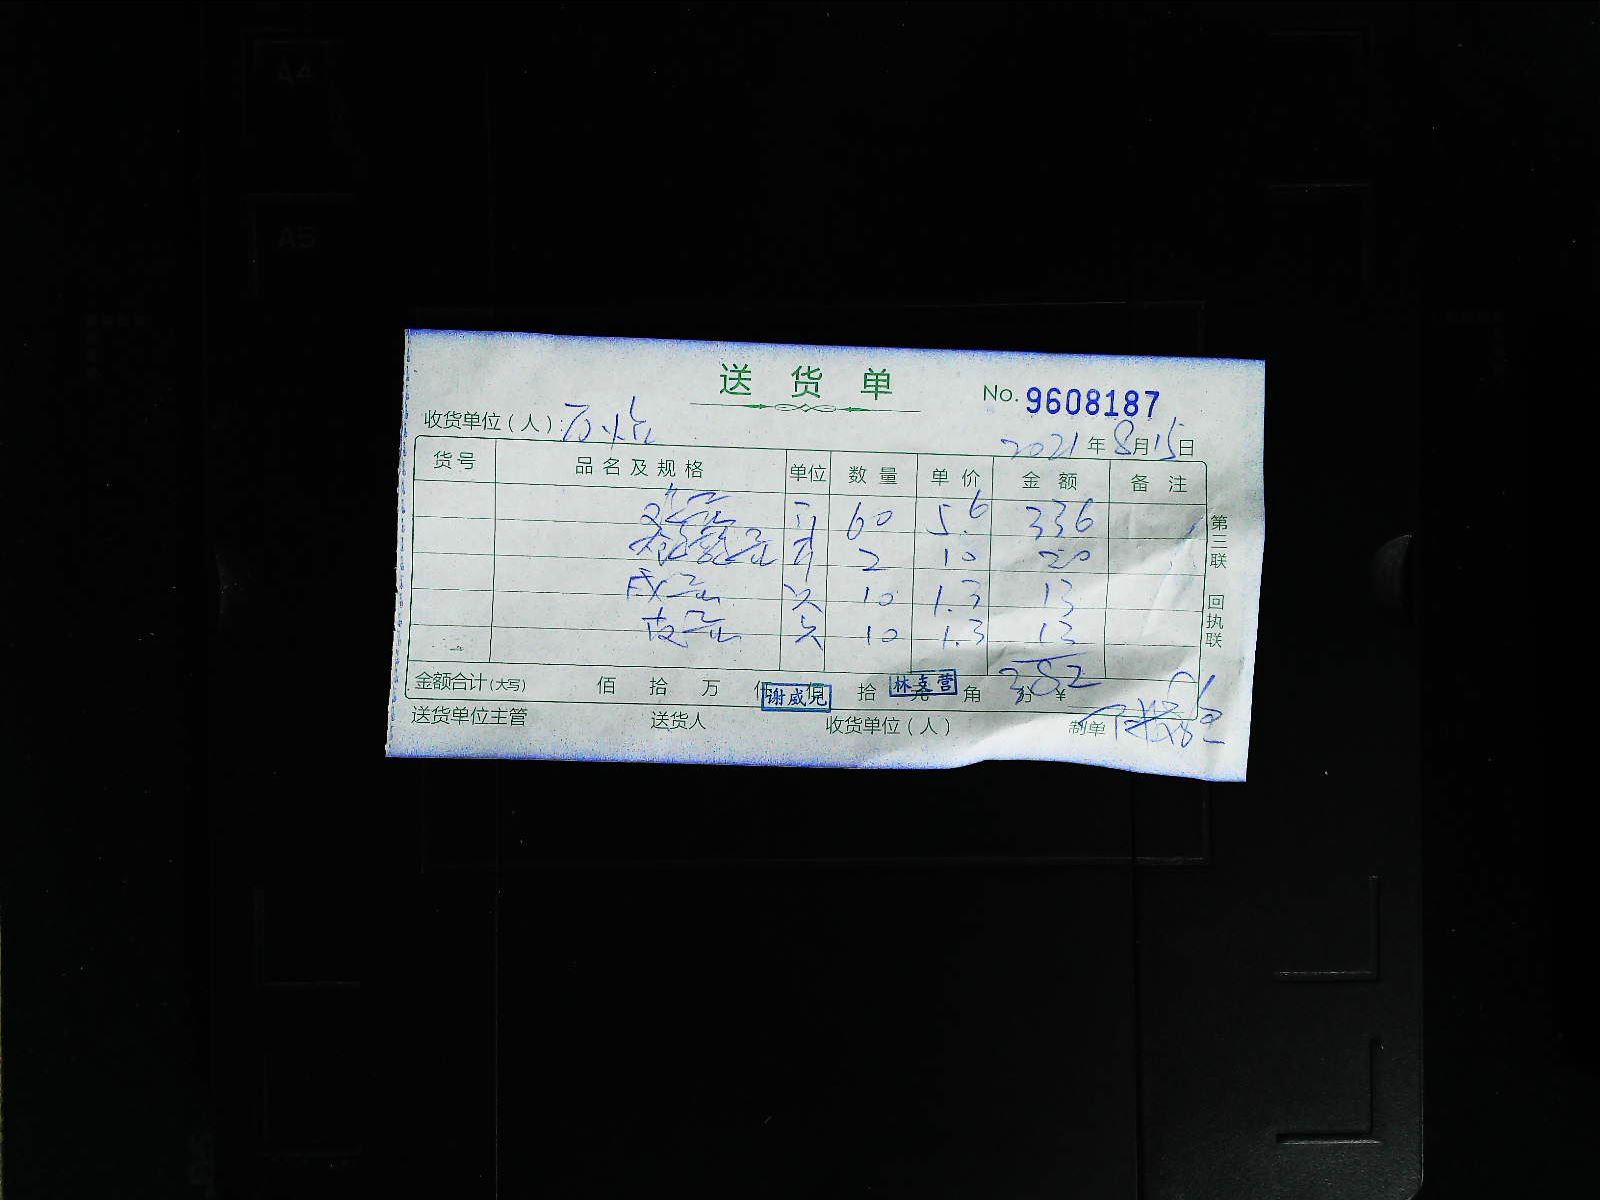 A4
A5
送货单
No. 9608187
收货单位（人）：万
2021年8月15日
货号 品名及规格 单位 数量 单价 金额 备注
鸡蛋 斤 60 5.6 336
斤 2 10 20
咸蛋 只 10 1.3 13
皮蛋 只 10 1.3 13
382
金额合计(大写) 佰 拾 万 仟 佰 拾 元 角 分 ¥
谢威儿
林喜营
送货单位主管 送货人 收货单位（人） 制单
第三联 回执联